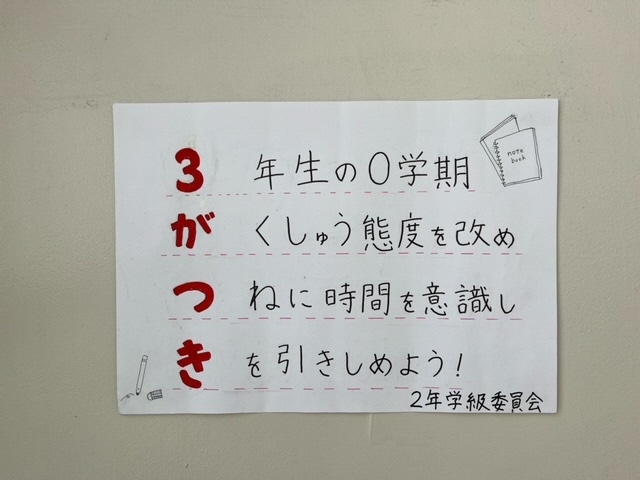 3年生の0学期
がくしゅう態度を改め
つねに時間を意識し
きを引きしめよう!
2年学級委員会
note
book